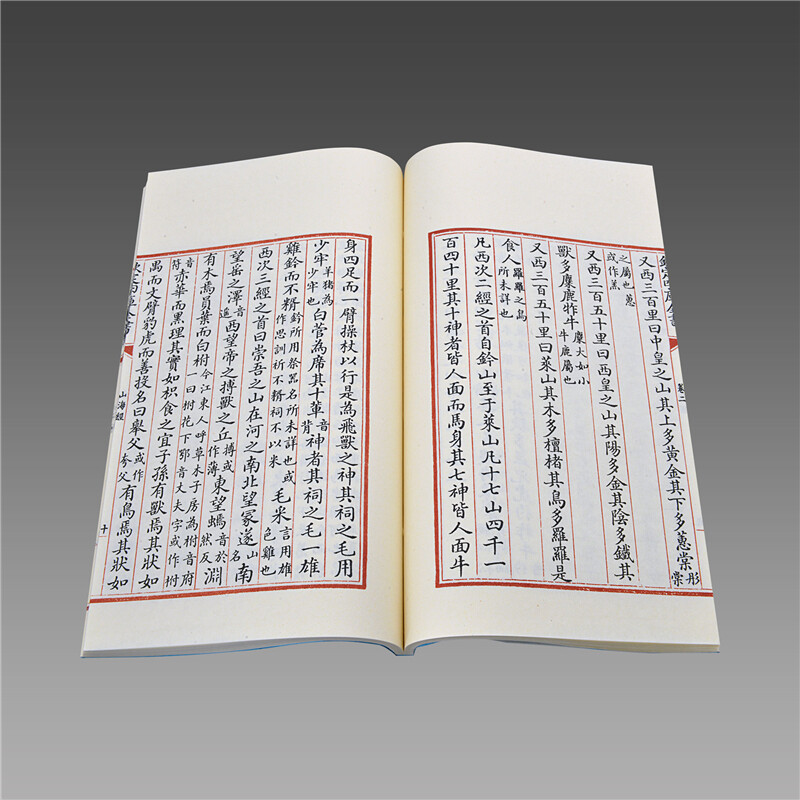 欽定四庫全書
卷二
又西三百里曰中皇之山其上多黄金其下多蕙棠彤棠
之屬也蕙或作羔
又西三百五十里曰西皇之山其陽多金其陰多鐵其
獸多麋鹿㸲牛麋大如小牛鹿屬也
又西三百五十里曰萊山其木多檀楮其鳥多羅羅是
食人羅羅之鳥所未詳也
凡西次二經之首自鈐山至于萊山凡十七山四千一
百四十里其十神者皆人面而馬身其七神皆人面牛
身四足而一臂操杖以行是為飛獸之神其祠之毛用
少牢羊猪為少牢也白菅為席其十軰神者其祠之毛一雄
雞鈐而不糈鈐所用祭器名所未詳也或作思訓祈不糈祠不以米毛米言用雄色雞也
西次三經之首曰崇吾之山在河之南北望冡遂山名南
望岳之澤音遥西望帝之搏獸之丘搏或作薄東望䗡音於然反淵
有木焉員葉而白柎今江東人呼草木子房為柎音府一曰柎花下鄂音丈夫字或作柎
音符赤華而黑理其實如枳食之宜子孫有獸焉其狀如
禺而文臂豹虎而善投名曰舉父或作夸父有鳥焉其狀如
欽定四庫全書
山海經
十